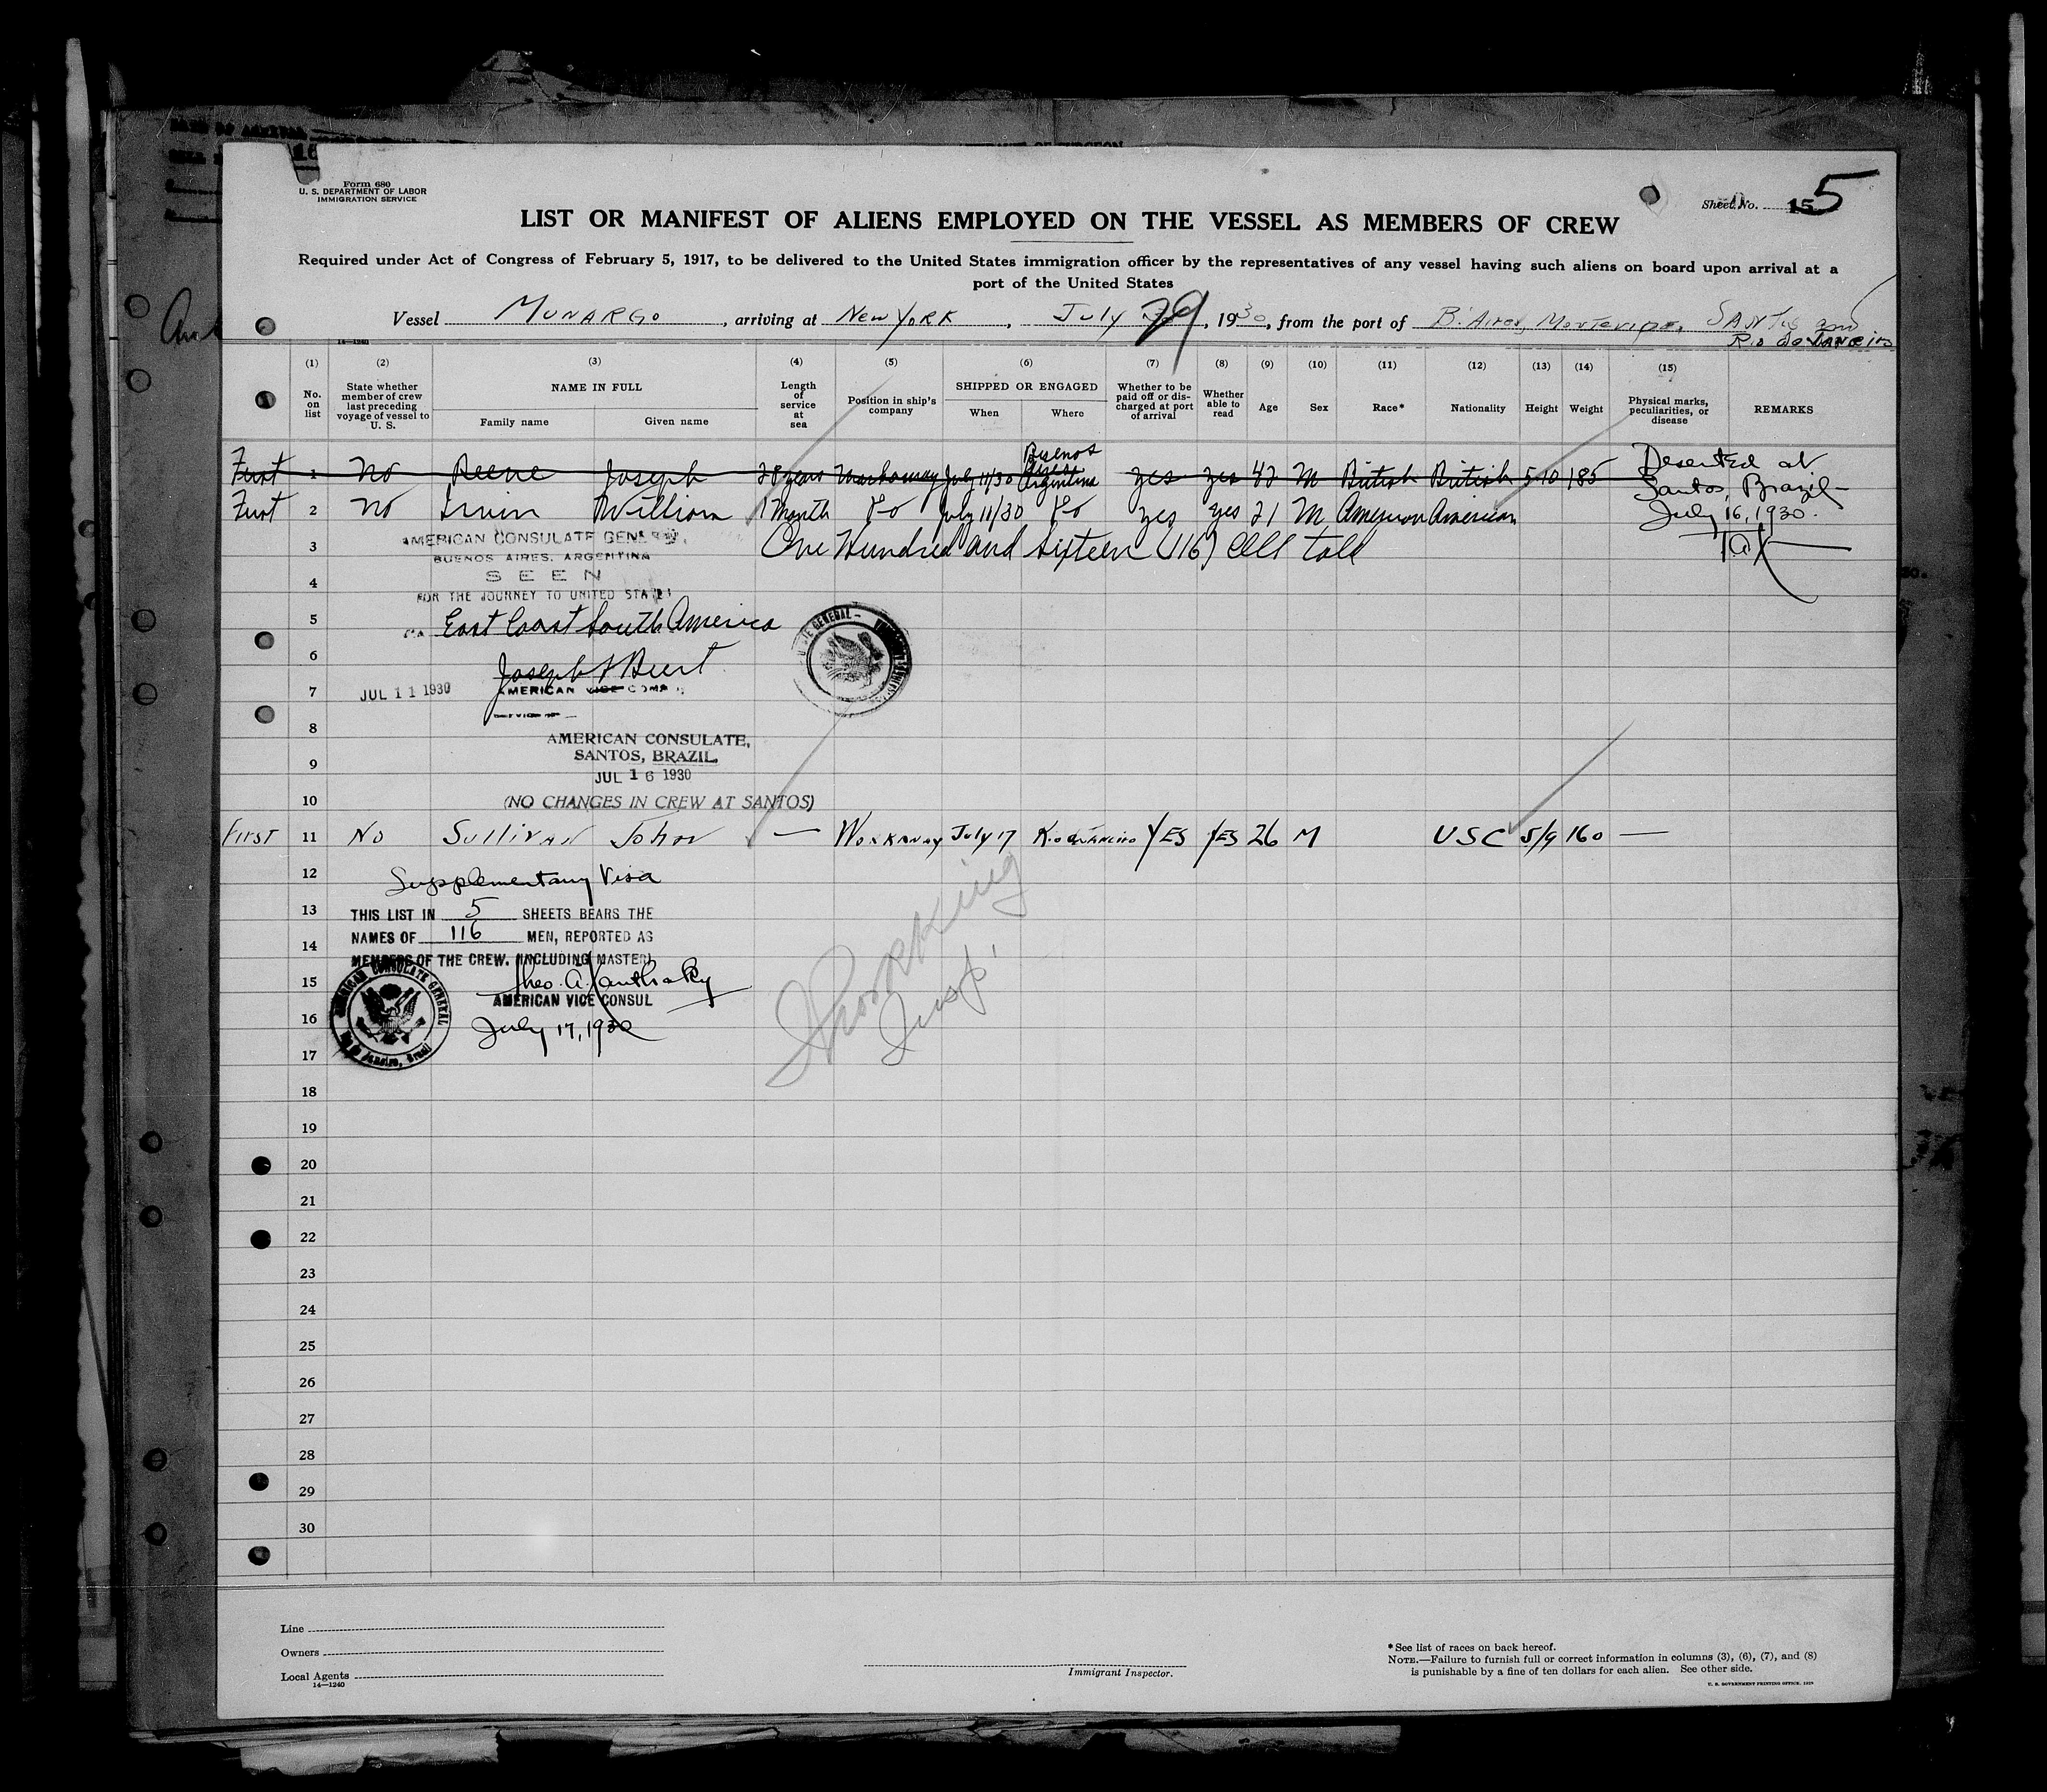 Form 680
U. S. DEPARTMENT OF LABOR
IMMIGRATION SERVICE
Sheet No. 15 5
LIST OR MANIFEST OF ALIENS EMPLOYED ON THE VESSEL AS MEMBERS OF CREW
Required under Act of Congress of February 5, 1917, to be delivered to the United States immigration officer by the representatives of any vessel having such aliens on board upon arrival at a
port of the United States
Vessel MUNARGO, arriving at NEW YORK, July 29, 1930, from the port of B. Aires, Montevideo, SANTOS and
Rio de JANEIRO
14—1240
(1) (2) (3) (4) (5) (6) (7) (8) (9) (10) (11) (12) (13) (14) (15)
No. on list
State whether member of crew last preceding voyage of vessel to U. S.
NAME IN FULL
Family name
Given name
Length of service at sea
Position in ship's company
SHIPPED OR ENGAGED
When
Where
Whether to be paid off or discharged at port of arrival
Whether able to read
Age
Sex
Race*
Nationality
Height
Weight
Physical marks, peculiarities, or disease
REMARKS
First 1 No Joseph 28 years Workaway July 11/30 Buenos Aires Argentina yes yes 42 M British British 5-10 185 Deserted at
Santos, Brazil—
July 16, 1930.
First 2 No Irwin William 1 Month Do July 11/30 Do yes yes 21 M American American
3 One Hundred and Sixteen (116) all told
AMERICAN CONSULATE GENERAL,
BUENOS AIRES, ARGENTINA
4 SEEN
FOR THE JOURNEY TO UNITED STATES
5 East Coast South America
6
7 JUL 11 1930 AMERICAN VICE CONSUL
8 AMERICAN CONSULATE,
9 SANTOS, BRAZIL,
JUL 16 1930
10 (NO CHANGES IN CREW AT SANTOS)
FIRST 11 NO SULLIVAN JOHN — WORKAWAY July 17 Rio de JANEIRO YES YES 26 M USC 5/9 160 —
12 Supplementary Visa
13 THIS LIST IN 5 SHEETS BEARS THE
14 NAMES OF 116 MEN, REPORTED AS
MEMBERS OF THE CREW. (INCLUDING MASTER)
15 Theo. A. Xanthaky
AMERICAN VICE CONSUL
16 July 17, 1930
AMERICAN CONSULATE GENERAL
Rio de Janeiro, Brazil
Insp.
17
18
19
20
21
22
23
24
25
26
27
28
29
30
Line
Owners
Local Agents
14—1240
Immigrant Inspector.
*See list of races on back hereof.
NOTE.—Failure to furnish full or correct information in columns (3), (6), (7), and (8)
is punishable by a fine of ten dollars for each alien. See other side.